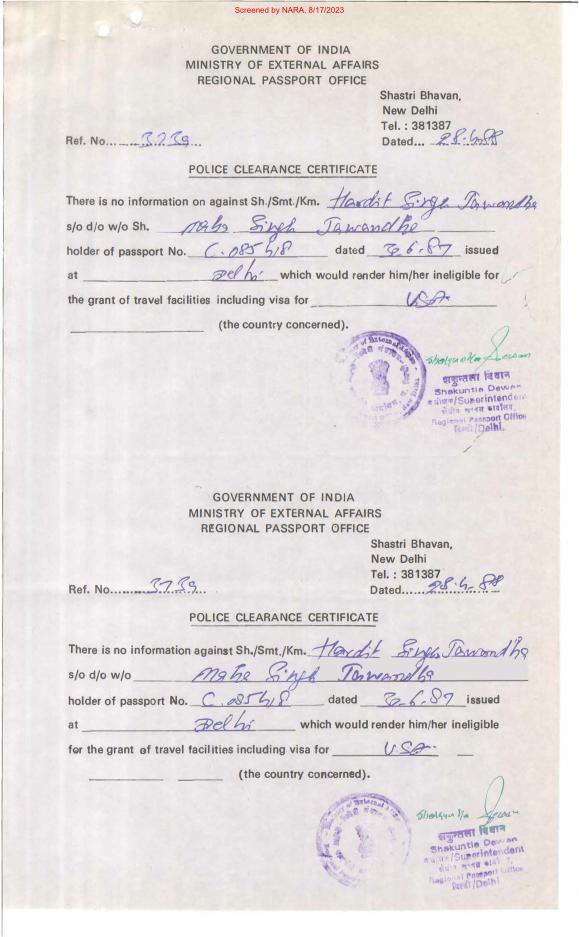 Screened by NARA, 8/17/2023
GOVERNMENT OF INDIA
MINISTRY OF EXTERNAL AFFAIRS
REGIONAL PASSPORT OFFICE
Shastri Bhavan,
New Delhi
Tel. : 381387
Ref. No. 3739 Dated... 28.4.88
POLICE CLEARANCE CERTIFICATE
There is no information on against Sh./Smt./Km. Hardit Singh Tawandha
s/o d/o w/o Sh. Maha Singh Tawandha
holder of passport No. C.085418 dated issued
at Delhi which would render him/her ineligible for
the grant of travel facilities including visa for USA
(the country concerned).
शकुन्तला दिवान
Shakuntla Dewan
/Superintendent
Regional Passport Office
दिल्ली/Delhi.
GOVERNMENT OF INDIA
MINISTRY OF EXTERNAL AFFAIRS
REGIONAL PASSPORT OFFICE
Shastri Bhavan,
New Delhi
Tel. : 381387
Ref. No. 3739 Dated 28.4.88
POLICE CLEARANCE CERTIFICATE
There is no information against Sh./Smt./Km. Hardit Singh Tawandha
s/o d/o w/o Maha Singh Tawandha
holder of passport No. C.085418 dated issued
at Delhi which would render him/her ineligible
for the grant of travel facilities including visa for U.S.A.
(the country concerned).
शकुन्तला दिवान
Shakuntla Dewan
/Superintendent
Regional Passport Office
दिल्ली/Delhi